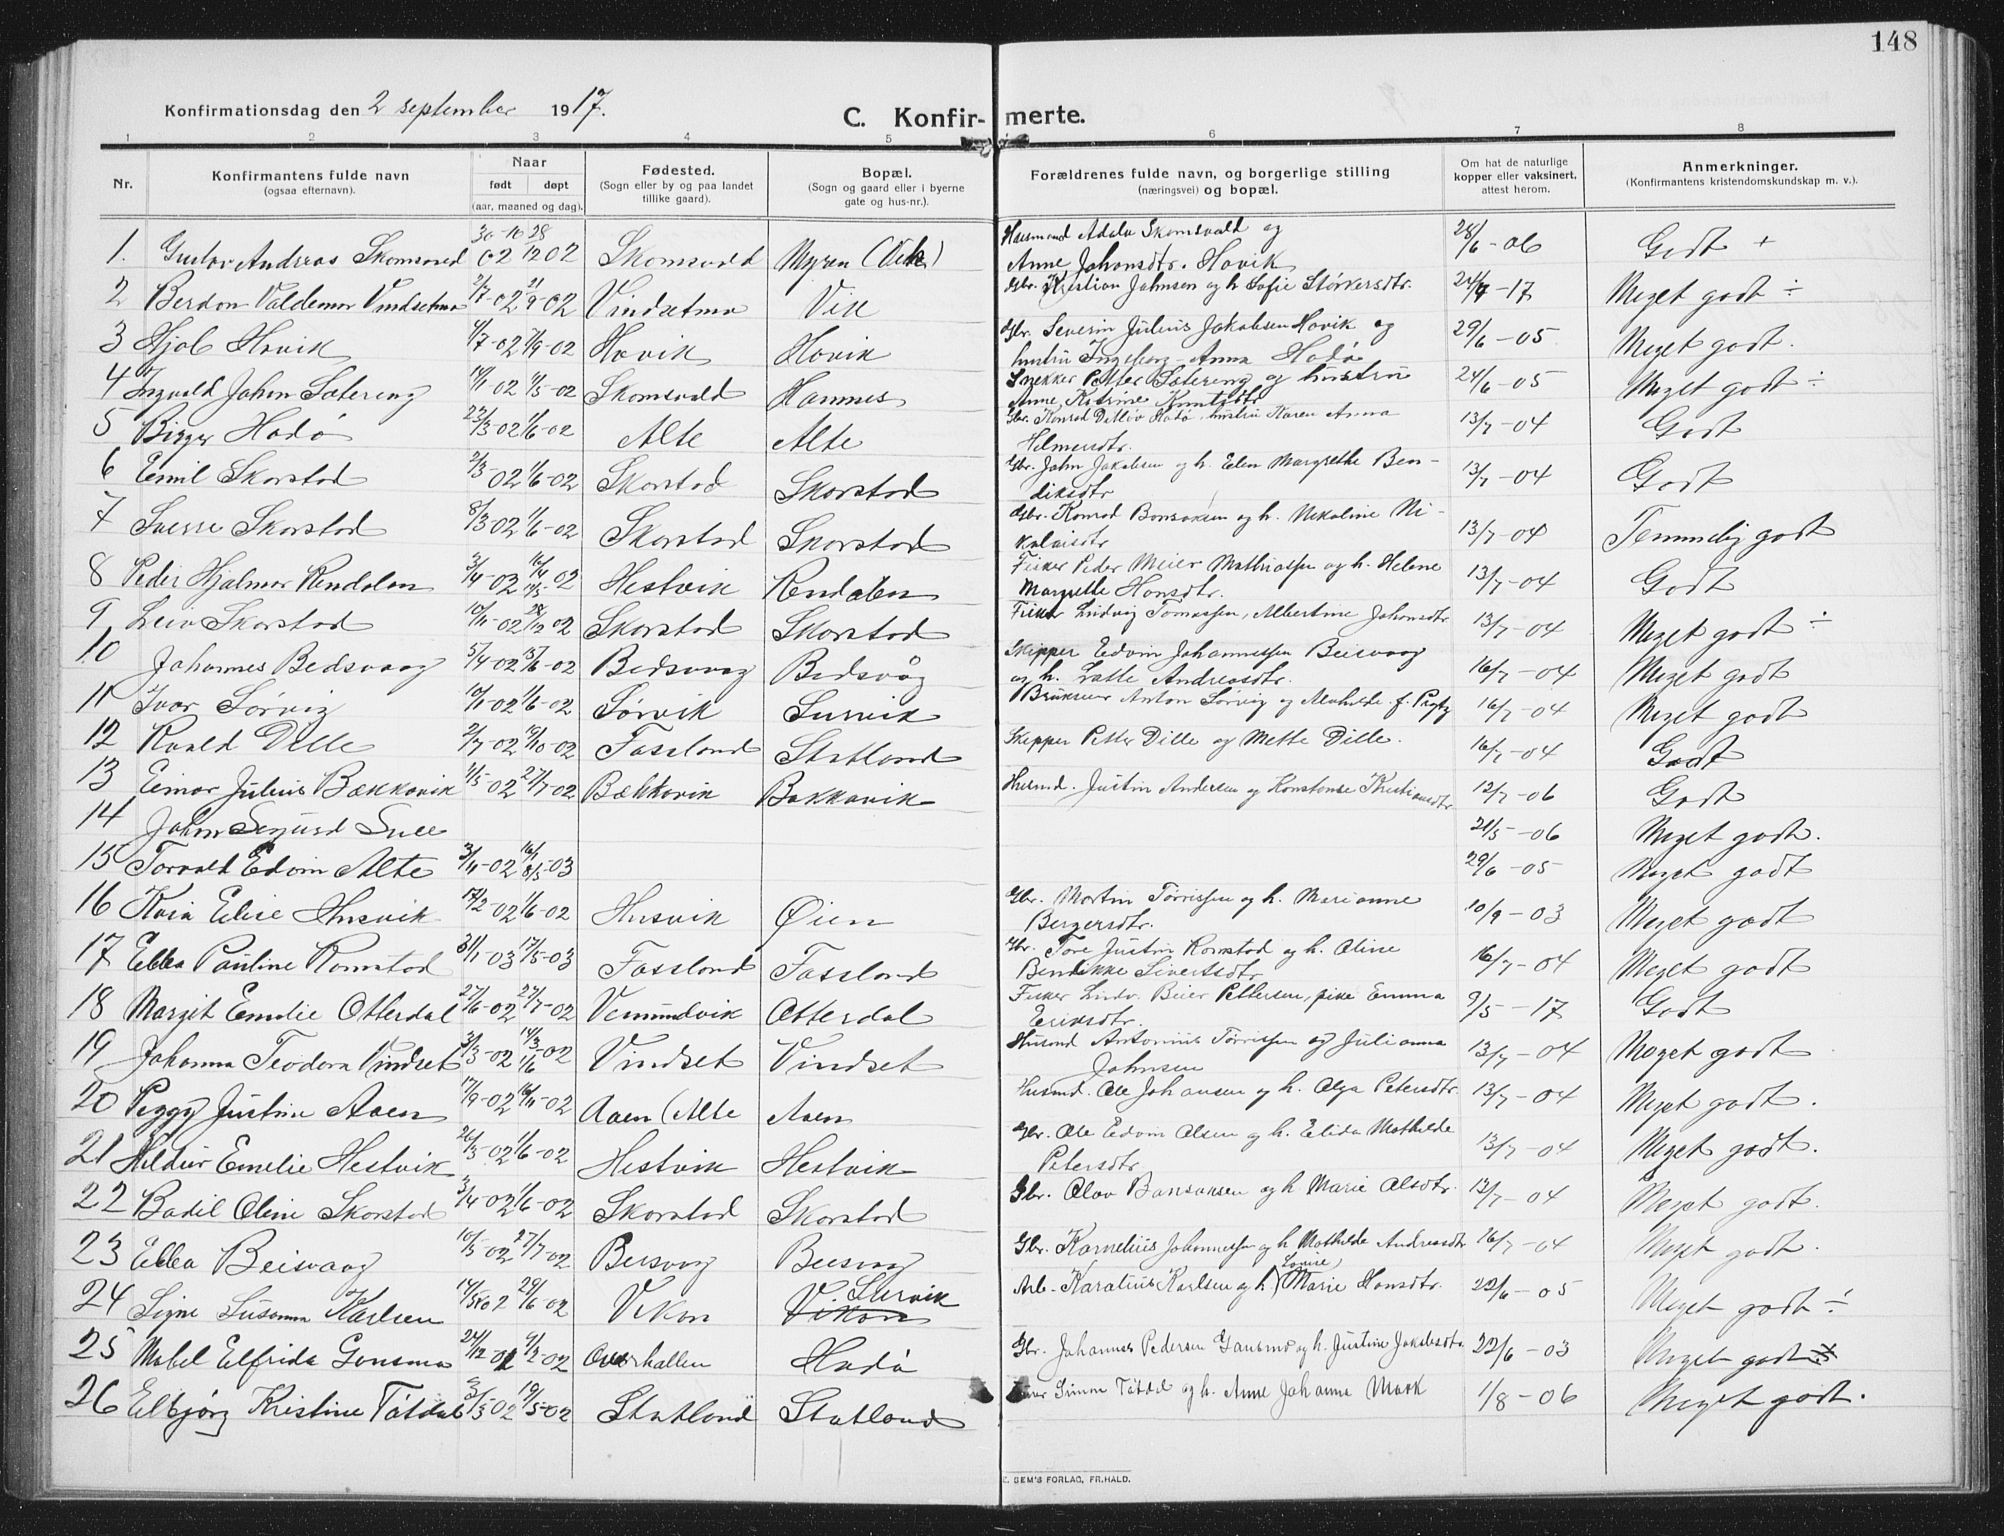 148
Konfirmationsdag den 2 september 1917.
C. Konfir-merte.
1 2 3 4 5 6 7 8
Nr.
Konfirmantens fulde navn
(ogsaa efternavn).
Naar
født døpt
(aar, maaned og dag).
Fødested.
(Sogn eller by og paa landet
tillike gaard).
Bopæl.
(Sogn og gaard eller i byerne
gate og hus-nr.).
Forældrenes fulde navn, og borgerlige stilling
(næringsvei) og bopæl.
Om hat de naturlige
kopper eller vaksinert,
attest herom.
Anmerkninger.
(Konfirmantens kristendomskundskap m. v.).
1. Gustav Andreas Skomsvold 30-10 02 28/12 02 Skomsvold Myren (Vik) Husmand Adolv Skomsvold og Anne Johansdtr. Hovik 28/6-06 Godt +
2 Berdon Valdemar Vindsetmo 2/7-02 21/9-02 Vindsetmo Vik Gbr. Kristian Johnsen og h Sofie Størkersdtr. 24/9-17 Meget godt ÷
3 Hjol Hovik 4/7-02 7/9-02 Hovik Hovik Gbr. Severin Julius Jakobsen Hovik og hustru Ingeborg-Anna Hodø 29/6-05 Meget godt.
4 Ingvald Johan Sætereng 14/1-02 4/5-02 Skomsvold Hamnes Snekker Petter Sætereng og hustru Anne Katrine Knutsdtr 24/6-05 Meget godt ÷
5 Birger Hodø 23/3-02 1/6-02 Alte Alte Gbr. Konrad Ditløv Hodø, hustru Karen Anna Helmersdtr. 13/7-04 Godt
6 Emil Skorstad 2/3-02 1/6-02 Skorstad Skorstad Gbr. John Jakobsen og h. Elen Margrethe Ben-diksdtr 13/7-04 Godt
7 Sverre Skorstad 8/3-02 1/6-02 Skorstad Skorstad Gbr. Konrad Bonsaksen og h. Nikoline Ni-kolaisdtr 13/7-04 Temmelig godt
8 Peder Hjalmar Rendalen 3/4-02 16/4 11/5-02 Hestvik Rendalen Fisker Peder Meier Mathiassen og h. Helene Margrethe Hansdtr. 13/7-04 Godt
9 Leiv Skorstad 10/11-02 28/12 02 Skorstad Skorstad Fisker Ludvig Tomassen, Albertine Johansdtr 13/7-04 Meget godt ÷
10 Johannes Bedsvaag 5/4-02 15/6-02 Bedsvaag Bedsvåg Skipper Edvin Johannessen Beisvaag og h. Latte Andreasdtr. 16/7-04 Meget godt
11 Ivar Sørvig 10/1-02 1/6-02 Sørvik Survik Bruksier Anton Sørvig og Alvhilde f. 16/7-04 Meget godt
12 Roald Dille 2/7-02 19/10-02 Fossland Statland Skipper Petter Dille og Mette Dille. 16/7-04 Godt
13 Einar Julius Bækkavik 11/5-02 27/7-02 Bækkavik Bakkavik Husmd. Justin Andersen og Konstanse Kristiansdtr 12/7-06 Godt
14 John Sigurd Sull 21/5-06 Meget godt.
15 Torvald Edvin Alte 3/11-02 16/1 8/3-03 29/6-05 Meget godt
16 Kaia Elise Husvik 17/2-02 1/6-02 Husvik Øien Gbr. Martin Tørrissen og h. Marianne Bergersdtr. 10/9-03 Meget godt
17 Ebba Pauline Romstad 31/1-03 17/5-03 Fossland Fossland Gbr. Tore Justin Romstad og h. Oline Bendikke Sivertsdtr 16/7-04 Meget godt
18 Margit Emelie Otterdal 27/6-02 27/7-02 Vemundvik Otterdal Fisker Ludv. Beier Pettersen, pike Emma Eriksdtr. 9/5-17 Godt
19 Johanna Teodora Vindset 3/3-02 14/3 1/6-02 Vindset Vindset Husmd Antonius Tørrissen og Julianna Johnsen 13/7-04 Meget godt
20 Peggy Justine Aaen 17/9-02 16/11-02 Aaen (Alte Aaen Husmd. Ole Johansen og h. Olga Petersdtr. 13/7-04 Meget godt.
21 Hildur Emelie Hestvik 26/3-02 1/6-02 Hestvik Hestvik Gbr. Ole Edvin Olsen og h. Elida Mathilde Petersdtr 13/7-04 Meget godt.
22 Bodil Oline Skorstad 3/4-02 1/6-02 Skorstad Skorstad Gbr. Olav Bonsaksen og h Marie Olsdtr. 13/7-04 Meget godt.
23 Ebba Beisvaag 10/5-02 27/7-02 Beisvag Beisvag Gbr. Kornelius Johannessen og h Mathilde Andreasdtr 16/7-04 Meget godt.
24 Signe Susanna Karlsen 14/5 02 29/6-02 Vikan V. Survik Vikan Arb. Karatius Karlsen og h Lovise, Marie Hansdtr. 22/6-05 Meget godt ÷
25 Mabel Elfrida Gansmo 24/12-01 9/2-02 Overhallen Hodø Gbr. Johannes Pedersen Gansmo og h. Justine Jakobsdtr. 22/6-03 Meget godt
26 Elbjørg Kristine Tøtdal 3/3-02 19/5-02 Statland Statland Simon Tøtdal og h. Anne Johanna Mork 1/8-06 Meget godt.
GEM'S FORLAG, FR.HALD.